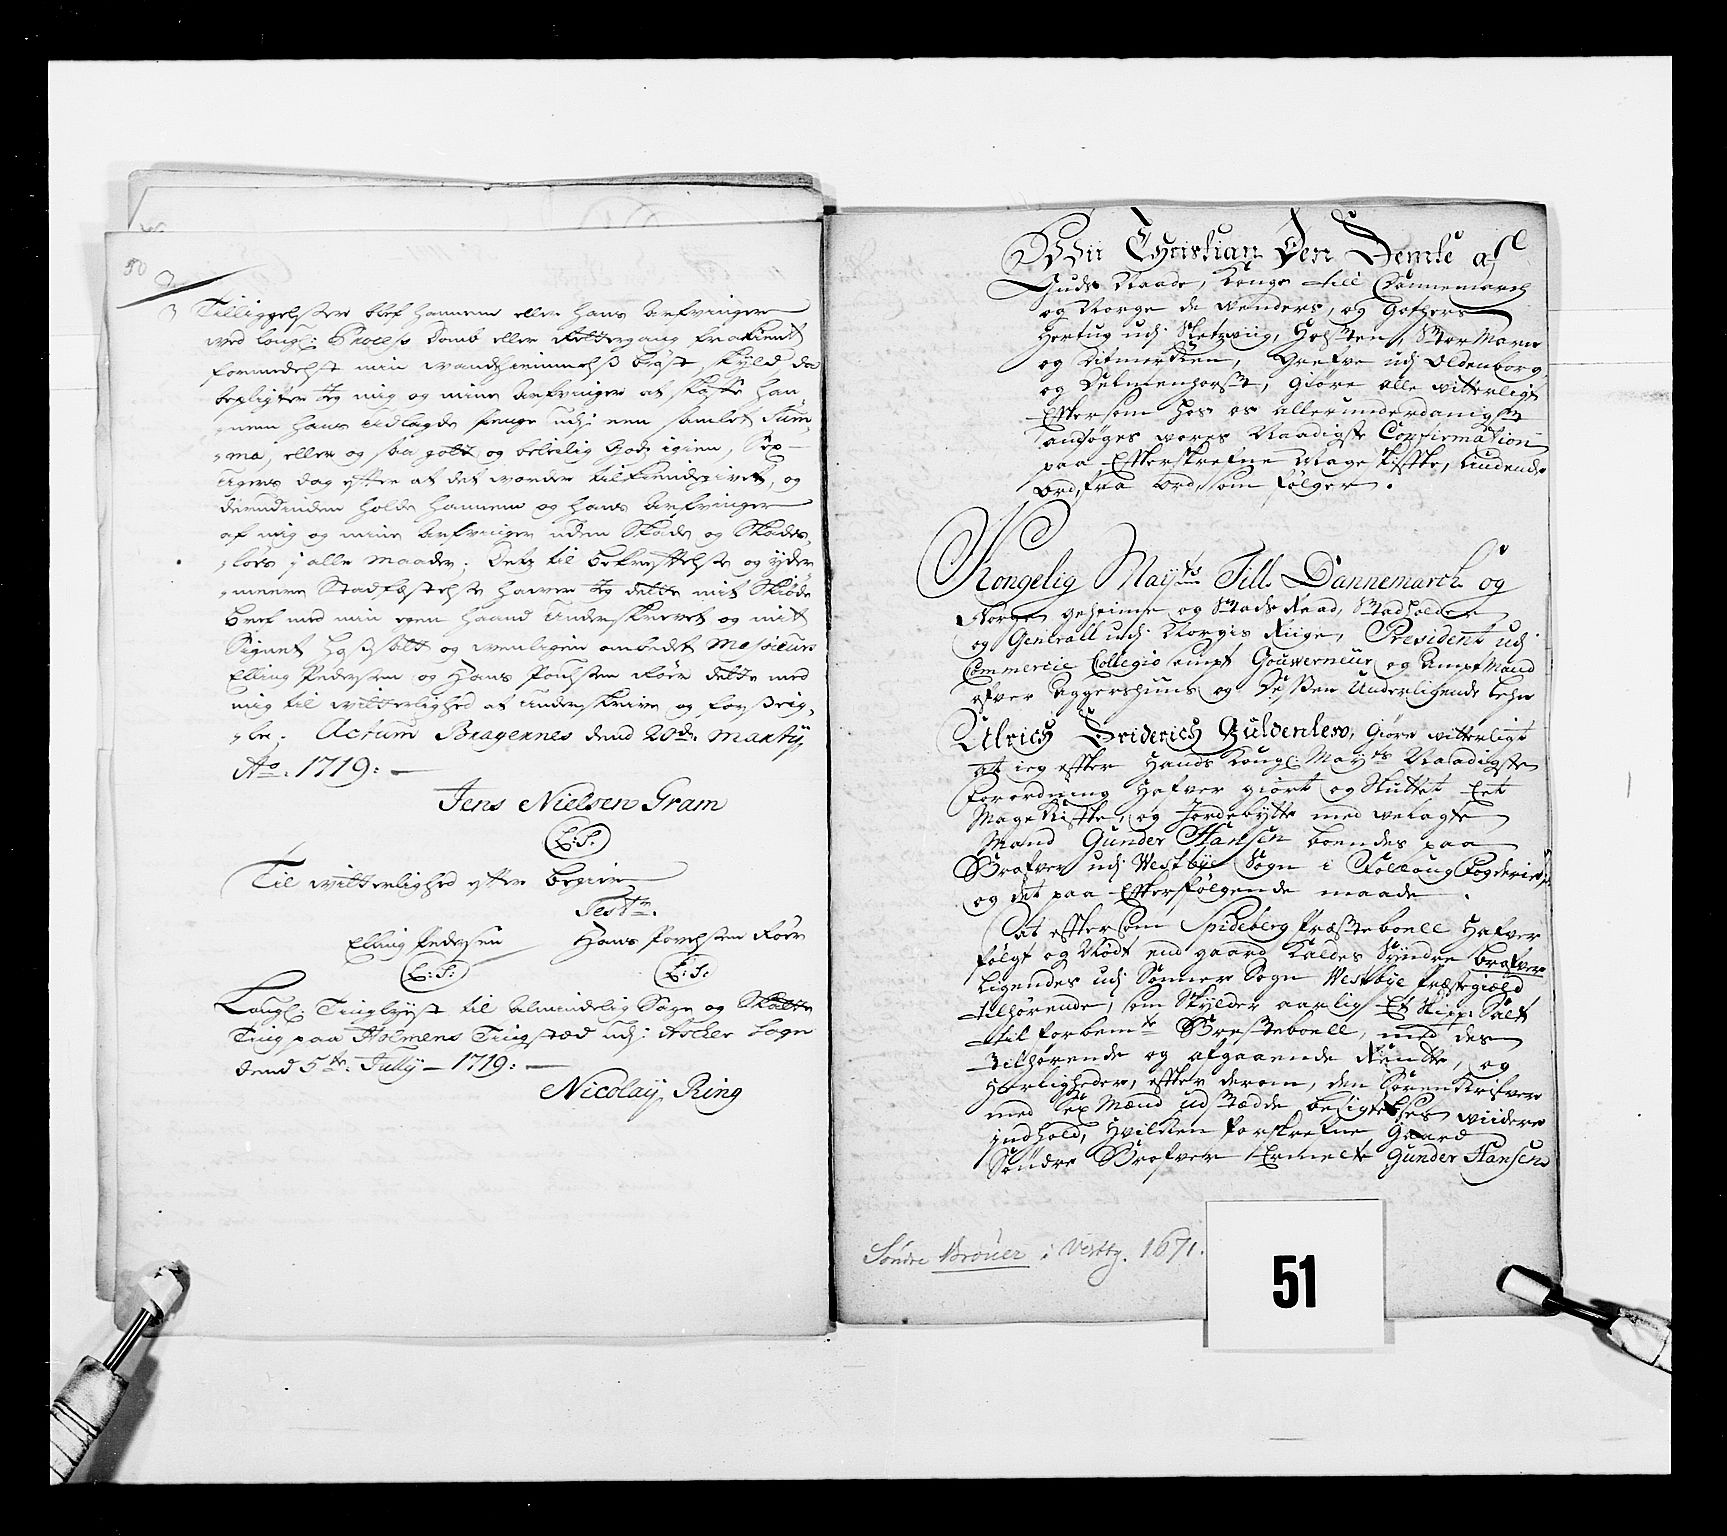 50
Tilliggelser blef hannem eller hans Arfvinger
ved Lougl: Process Domb eller Rettergang frakiendt
formedelst min wandhiemmelss brøst skyld, da
bepligter Jeg mig og mine Arfvinger at skaffe han-
nem hans udlagde penge udj een samlet Sum-
ma, eller og saa godt og beleilig Gods igien, Sex
Ugers dag efter at det worder tilkiendegivet, og
derudinden holde hannem og hans Arfvinger
af mig og mine Arfvinger uden Skade og Skades-
løes j alle maader. Dets til bekreftelse og yder-
meere Stadfæstelse hawer Jeg dette mit Skiøde
bref med min egen haand underskrevet og mit
Signet hossatt og wenligen ombedet Messieurs
Elling Pedersen og Hans Povelsen Röer dette med
mig til witterlighed at underskrive og forseig-
le. Actum Bragernes dend 20de Martij
Ao. 1719:
Jens Nielsen Gram
L:S:
Til witterlighed efter begier
Test.
Elling Pedersen Hans Povelsen Röer
L:S: L:S:
Lougl: Tinglyst til almindelig Sage og Skatte
Ting paa Holmens Tingsted udj Ascher Sogn
dend 5te July 1719:
Nicolaij Ring
Wii Christian Den Femte af
Guds Naade, Konge till Dannemarch
og Norge de Wenders, og Gothers
Hertug udj Sletzwiig, Holsten, Stormarn
og Ditmersken, Grefve udj Oldenborg,
og Delmenhorst, Giøre alle witterligt
Eftersom hos os allerunderdanigst
ansøges wores Naadigste Confirmation
paa Efterskrefne Mageskifte, liudende
Ord, fra Ord, som følger.
Kongelig Mayts Till Dannemarch og
Norge geheime og Stads Raad, Stadholder
og Generall udj Norgis Riige, President udj
Commercie Collegio sampt Gouverneur og Ampt Mand
ofver Aggershuus og Dessen Underligende Lehn
Ulrich Friderich Guldenlew, Giøre witterligt
at ieg efter Hands Kongl: Mayts Naadigste
forordning Hafver giort og Sluttet Eet
Mageskifte, og Jordebytte med welagte
Mand Gunder Hansen boendes paa
Brafver udj Vestbye Sogn i Follaug Fogderie
og det paa Efterfølgende maade.
At eftersom Spideberg Præsteboell Hafver
følgt og Nødt end gaard kaldes Syndre brafver
Ligendes udj Sonner Sogn Vestbye Præstegiæld
tilhørende, som Skylder aarlig Et Skipp: Salt
til forbemte Præsteboell, med des
tilhørende og afgaaende Rente, og
Herligheder, efter derom, den Sorenskrifver
med sex Mænd udstædde besigtelses wiidere
jndhold, Hvilken forskrefne Gaard
Søndre Brafver Ermelte Gunder Hansen
Søndre Brouer i Vestby. 1671.
51